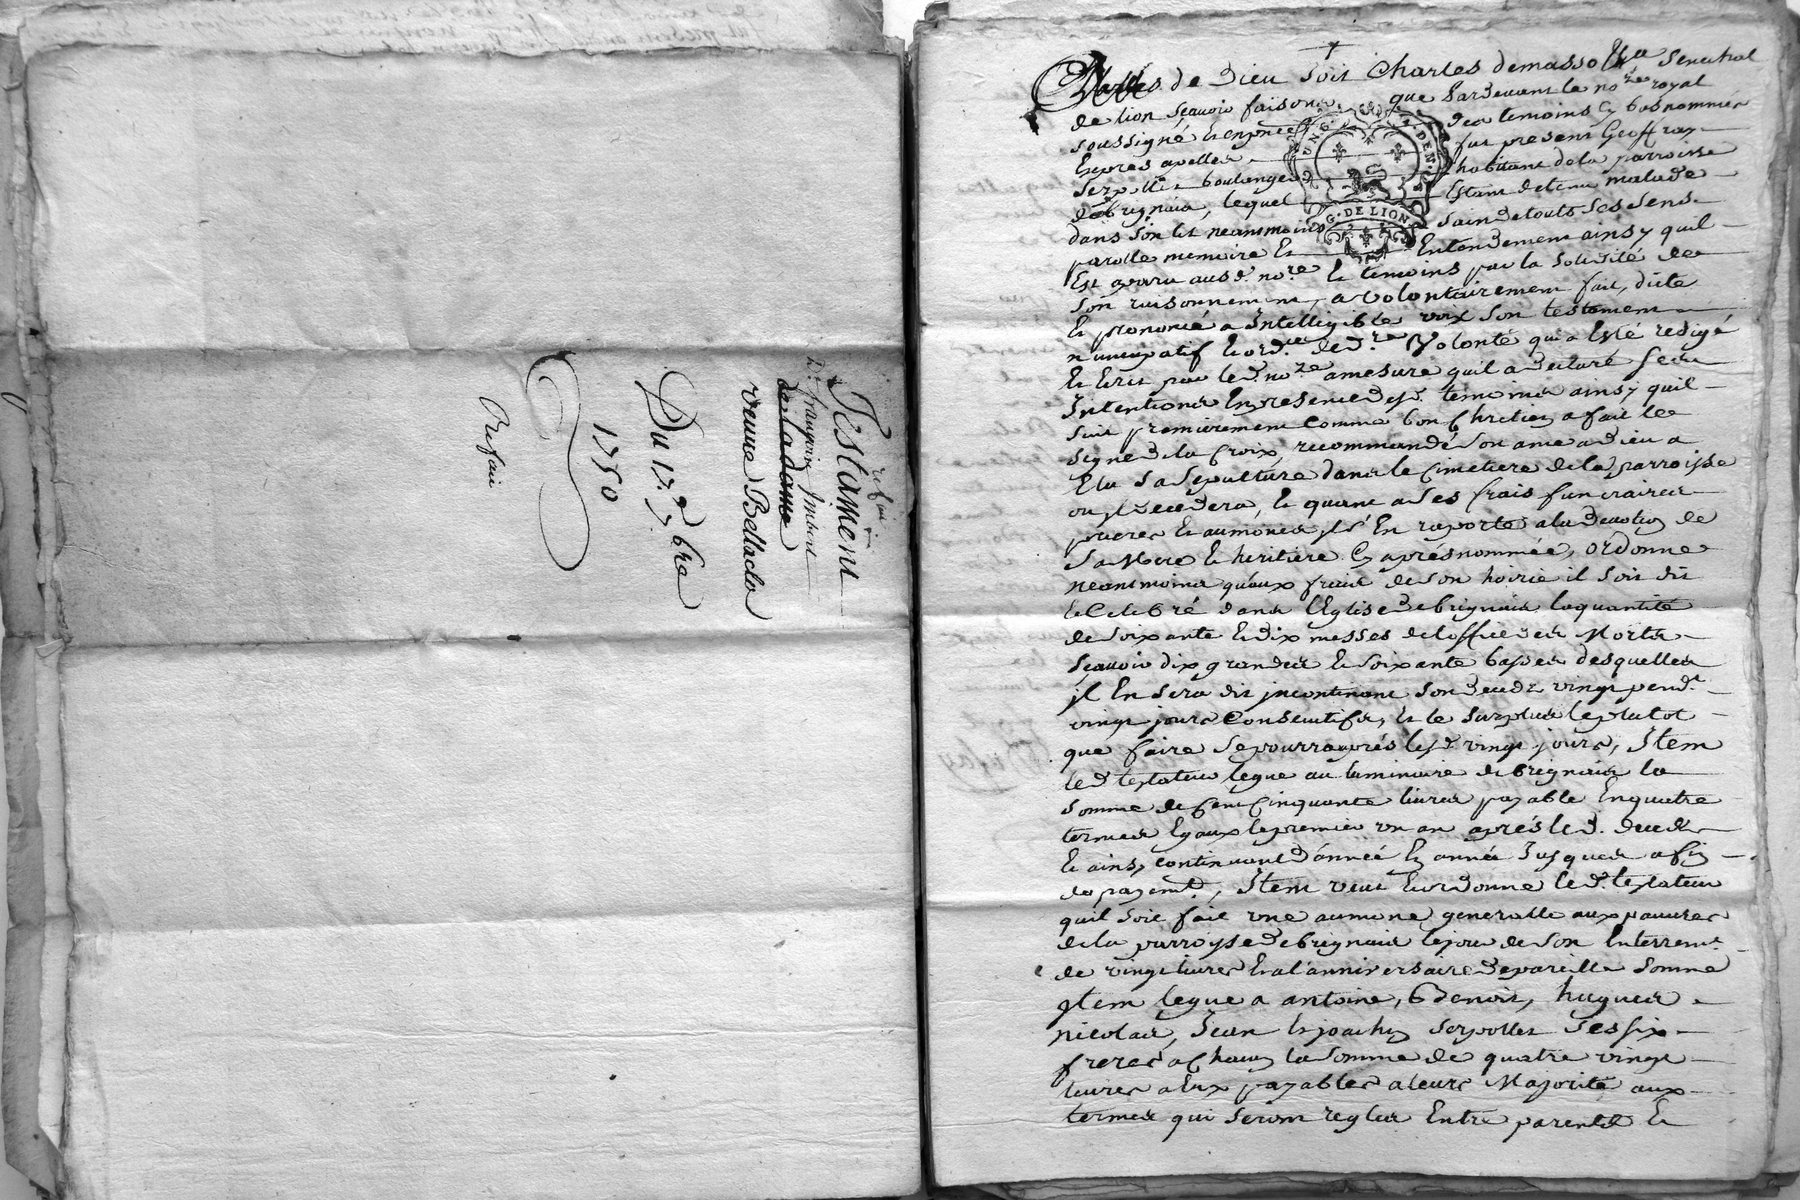 Testament
refait
De françoise Imbert
De la dame
veuve Bellaclas
Du 17e 7bre
1750
Refait
de Dieu soit Charles demasso Senechal
de lion scavoir faisons que pardevant le nore royal
soussigné et en presence des temoins cy bas nommés
Expres apellés fut present Geoffray
Serpollet boulanger habitant de la parroisse
de brignais, lequel Estant detenu malade
dans son lit neantmoins sain de touts ses sens
parolle memoire Et Entendement ainsy quil
Est aparu ausd. nore Et temoins par la solidité de
son raisonnement, a volontairement fait, dicté
Et prononcé a Intelligible voix son testament
nuncupatif Et ord.re de d.re Volonté qui a Esté redigé
Et Ecrit par led. nore amesure quil a declaré ses
Intentions En presence desd. temoins ainsy quil
suit premierement comme bon Chretien a fait le
signe de la Croix, recommandé son ame a Dieu a
Elu sa sepulture dans le Cimetiere de la parroisse
ou il decedera, Et quant a ses frais funeraires
prieres Et aumones il s'En raporte a la devotion de
sa Mere Et heritiere Cy aprés nommée, ordonne
neantmoins qu'aux frais de son hoirie il soit dit
Et Celebré dans l'Eglise de brignais la quantité
de soixante Et dix messes de l'office des Morts
scavoir dix grandes Et soixante basses desquelles
jl En sera dit jncontinant son decedz vingt pendt
vingt jours Consecutifs, Et le surplus le plutot
que faire se pourra aprés lesd. vingt jours, Item
led. testateur legue au luminaire de brignais la
somme de Cent Cinquante livres payable En quatre
termes Egaux le premier un an aprés led. decedz
Et ainsy continuant d'année En année Jusques a fin
de payemt, Item veut Et ordonne led. testateur
quil soit fait une aumone generalle aux pauvres
de la parroysse de brignais le jour de son Enterremt
de vingt livres Et a l'anniversaire de pareille somme
Item legue a antoine, Benoit, hugues
nicolas, Jean Et joachin serpollet ses six
freres a Chacun la somme de quatre vingt
livres a Eux payables a leurs Majorité aux
termes qui seront regles Entre parents Et